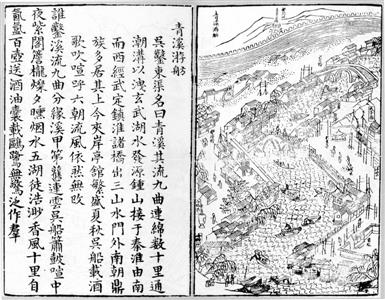 青溪游舫
吳鑿東渠名曰青其流九曲連綿數十里通
潮溝以洩玄武湖水發源鍾山接于秦淮由南
而西經武定鎮淮諸橋出三山水門外南朝鼎
族多居其上今夾岸亭館繁盛夏秋吳船載酒
歌吹喧呼六朝流風依然無改
誰鑿溪流九曲分緣溪甲第龍連雲吳船簫鼓喧中
夜紫閣簷櫳燦夕曛烟水五湖徒浩渺香風十里自
氤氳百壺送酒油囊載鷗鷺無驚泛作羣
青溪游舫